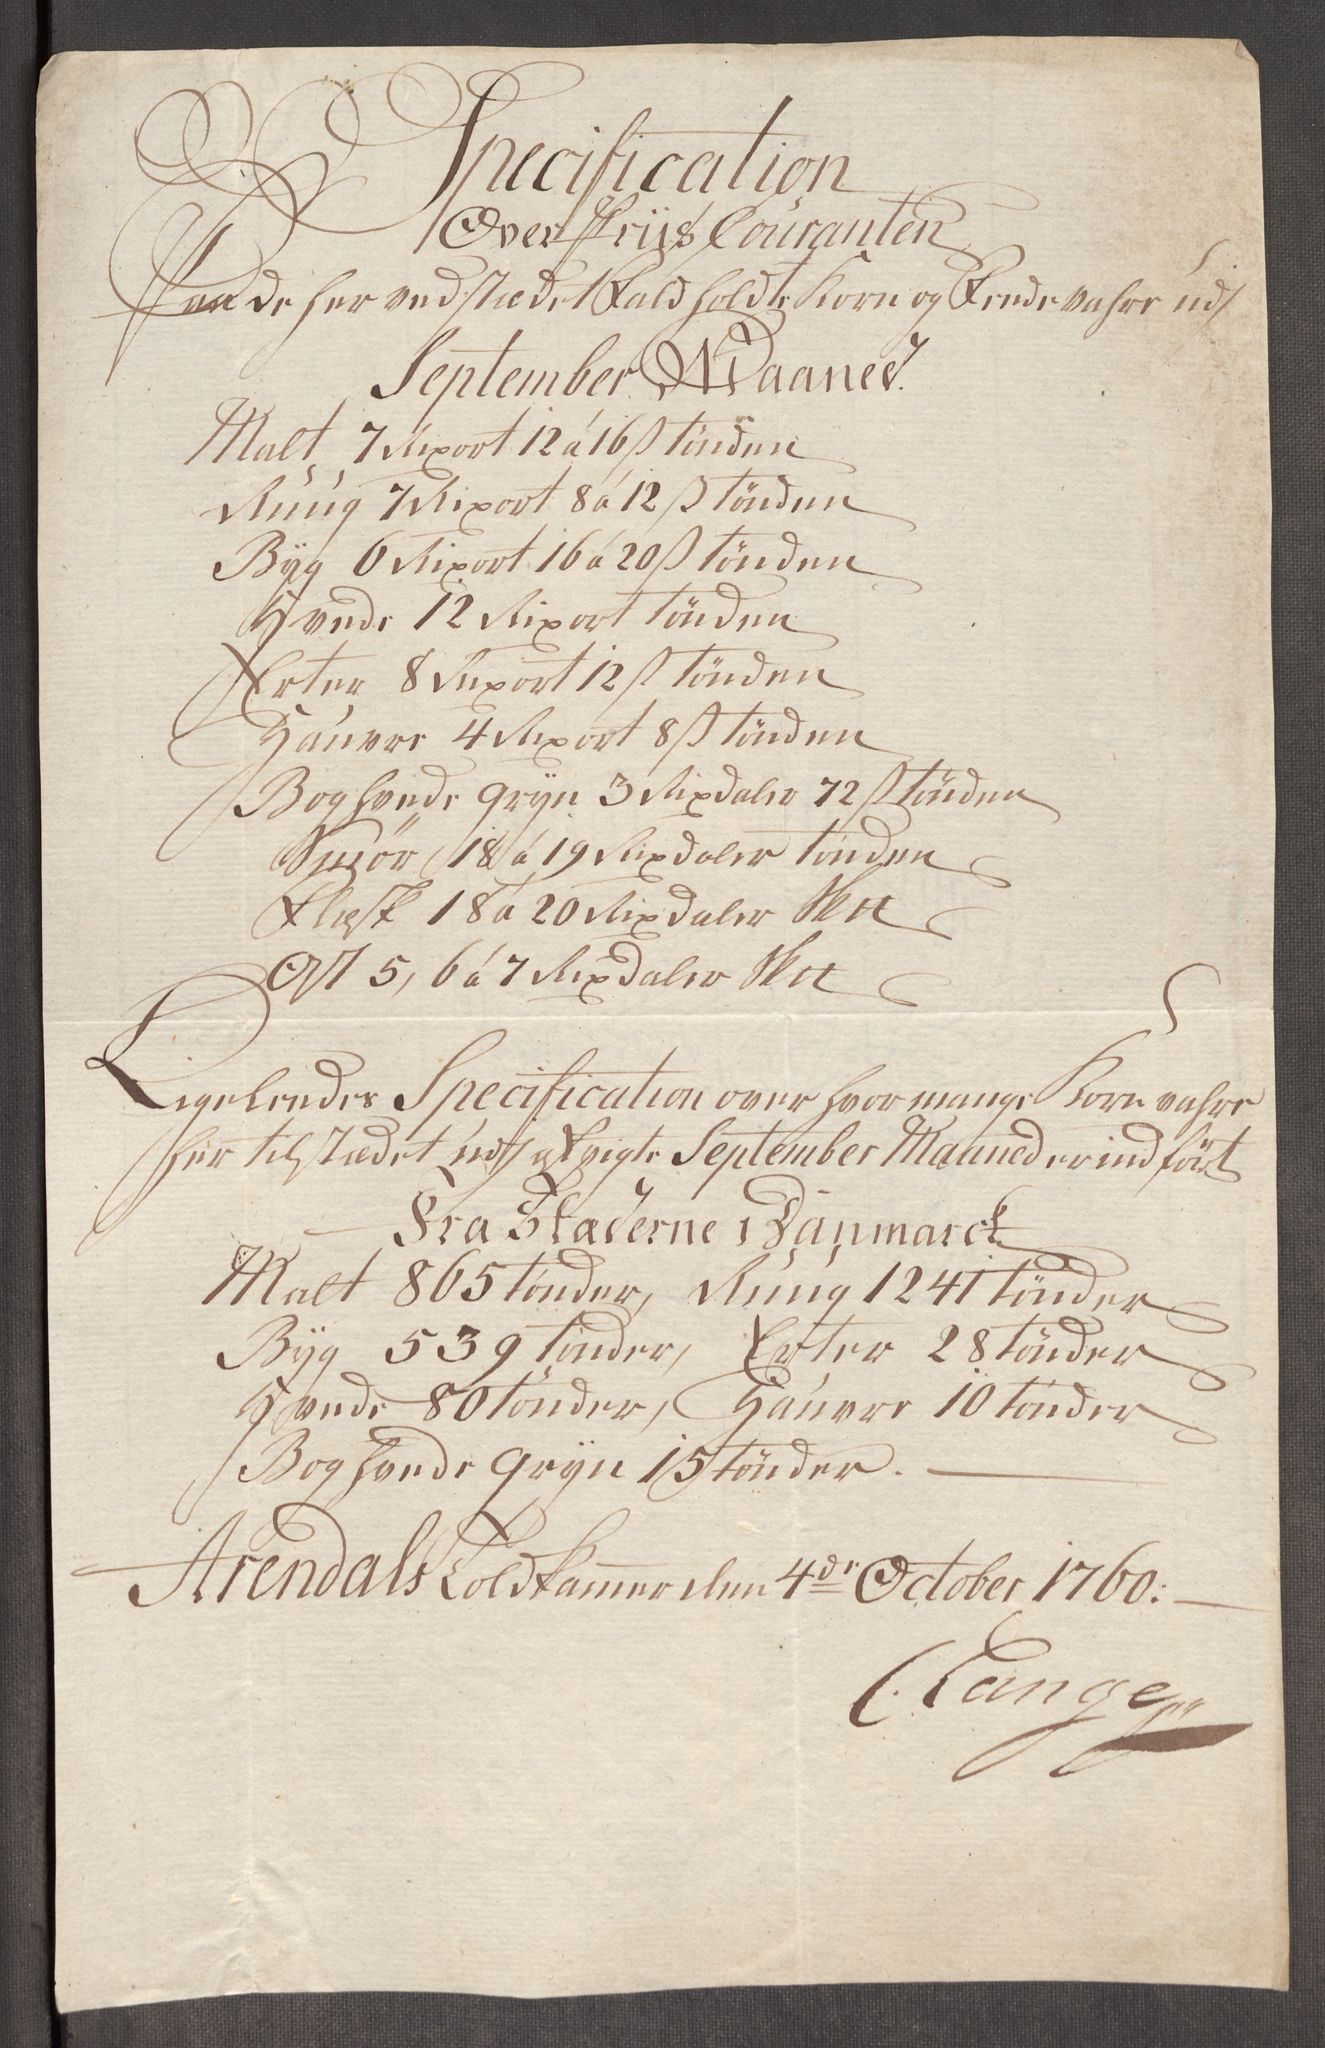 Specification
Over Priis Couranten
Paa de her ved stædet Fald holdte Korn og Fede vahre udj
September Maaned.
Malt 7 Rixort 12 á 16 ß tönden
Rüüg 7 Rixort 8 á 12 ß tönden
Byg 6 Rixort 16 á 20 ß tönden
Hvede 12 Rixort tönden
Erter 8 Rixort 12 ß tönden
Haúvre 4 Rixort 8 ß tönden
Boghvede gryn 3 Rixdaler 72 ß tönden
Smör 18 á 19 Rixdaler tönden
Flesk 18 á 20 Rixdaler
Ost 5, 6 á 7 Rixdaler
Ligeledes Specification over hvor mange Korn vahre
her til stædet udj September Maaned er ind fört
Fra Stæderne i Danmarck
Malt 865 tönder, Rüüg 1241 tönder
Byg 539 tönder, Erter 28 tönder
Hvede 80 tönder, Haúvre 10 tönder
Boghvede gryn 15 tönder.
Arendals Toldkammer den 4de October 1760.
C. Lange